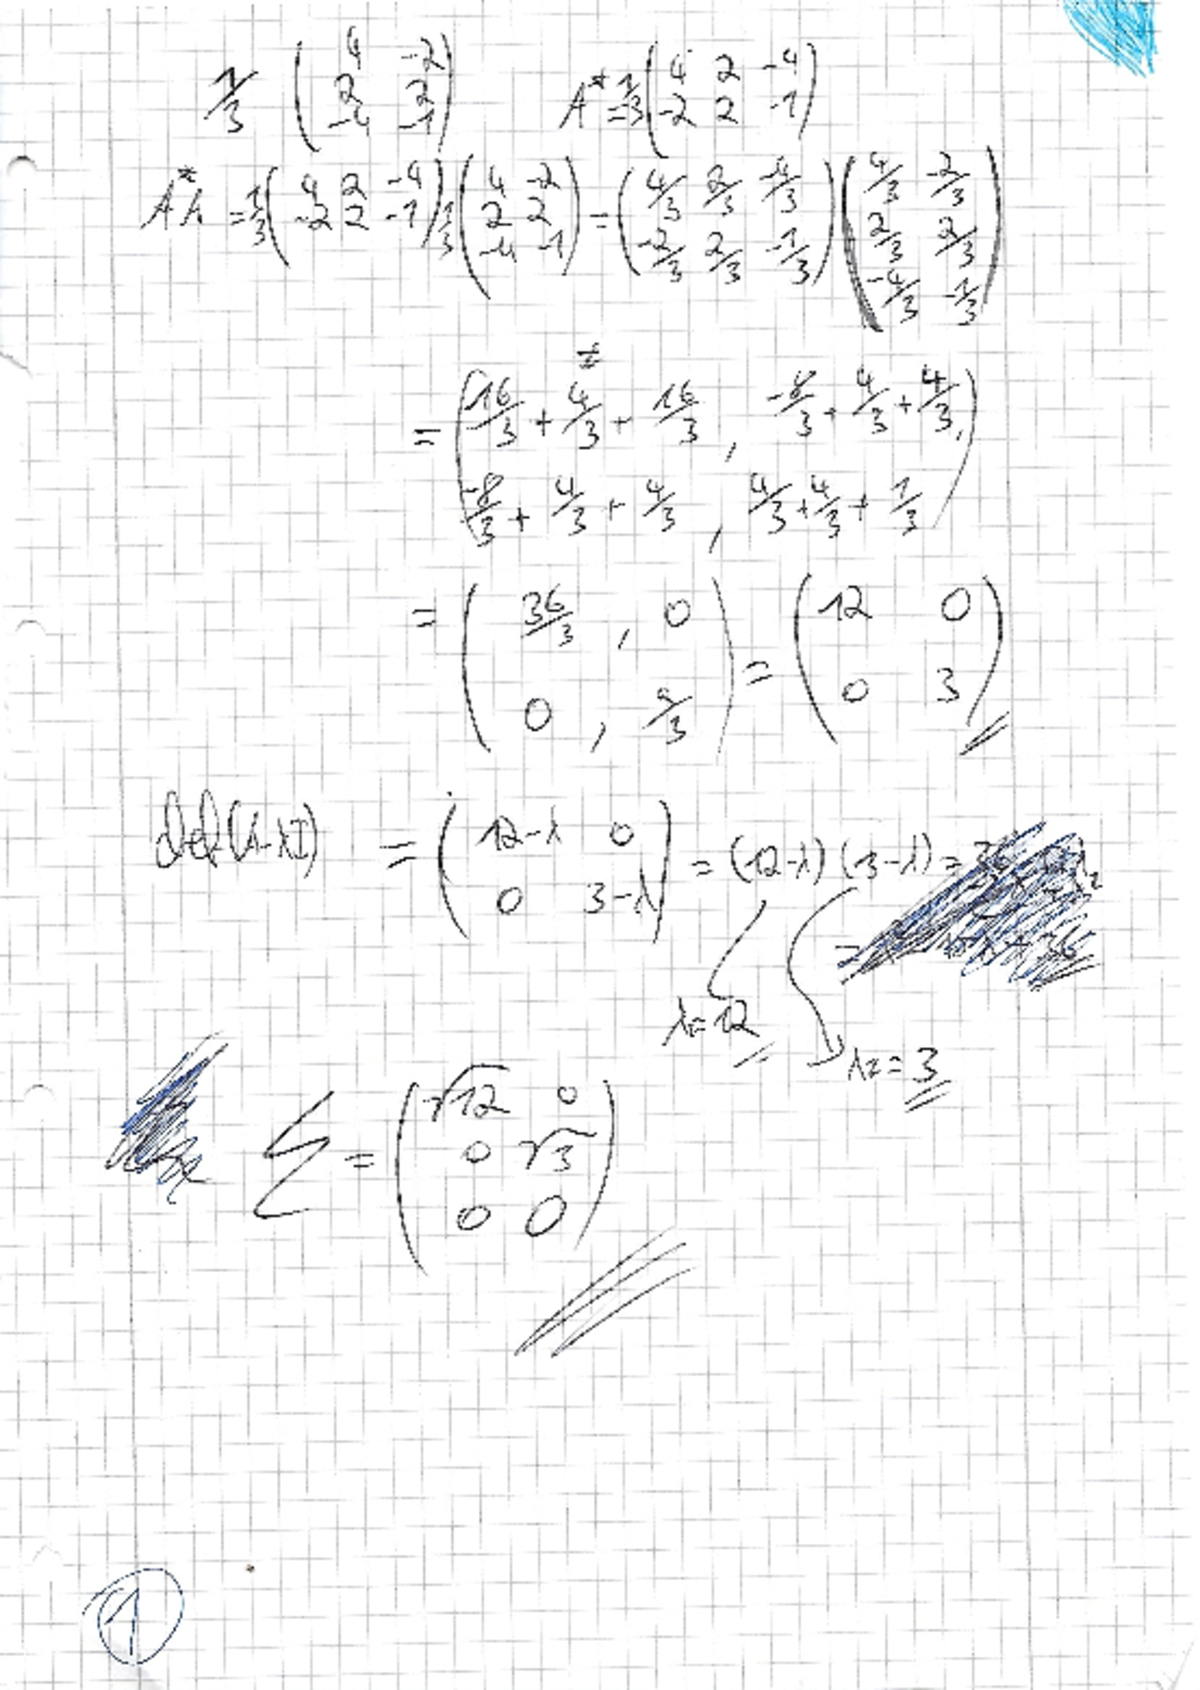 1/3 ( 4 -2 ; 2 2 ; -4 -1 )   A* = 1/3 ( 4 2 -4 ; -2 2 -1 )
A*A = 1/3 ( 4 2 -4 ; -2 2 -1 ) 1/3 ( 4 -2 ; 2 2 ; -4 -1 ) = ( 4/3 2/3 -4/3 ; -2/3 2/3 -1/3 ) ( 4/3 -2/3 ; 2/3 2/3 ; -4/3 -1/3 )
= ( 16/3 + 4/3 + 16/3 , -8/3 + 4/3 + 4/3 ; -8/3 + 4/3 + 4/3 , 4/3 + 4/3 + 1/3 )
= ( 36/3 , 0 ; 0 , 9/3 ) = ( 12 0 ; 0 3 )
det(A-λI) = ( 12-λ 0 ; 0 3-λ ) = (12-λ) (3-λ) =
λ=12
λ2=3
Σ = ( √12 0 ; 0 √3 ; 0 0 )
1